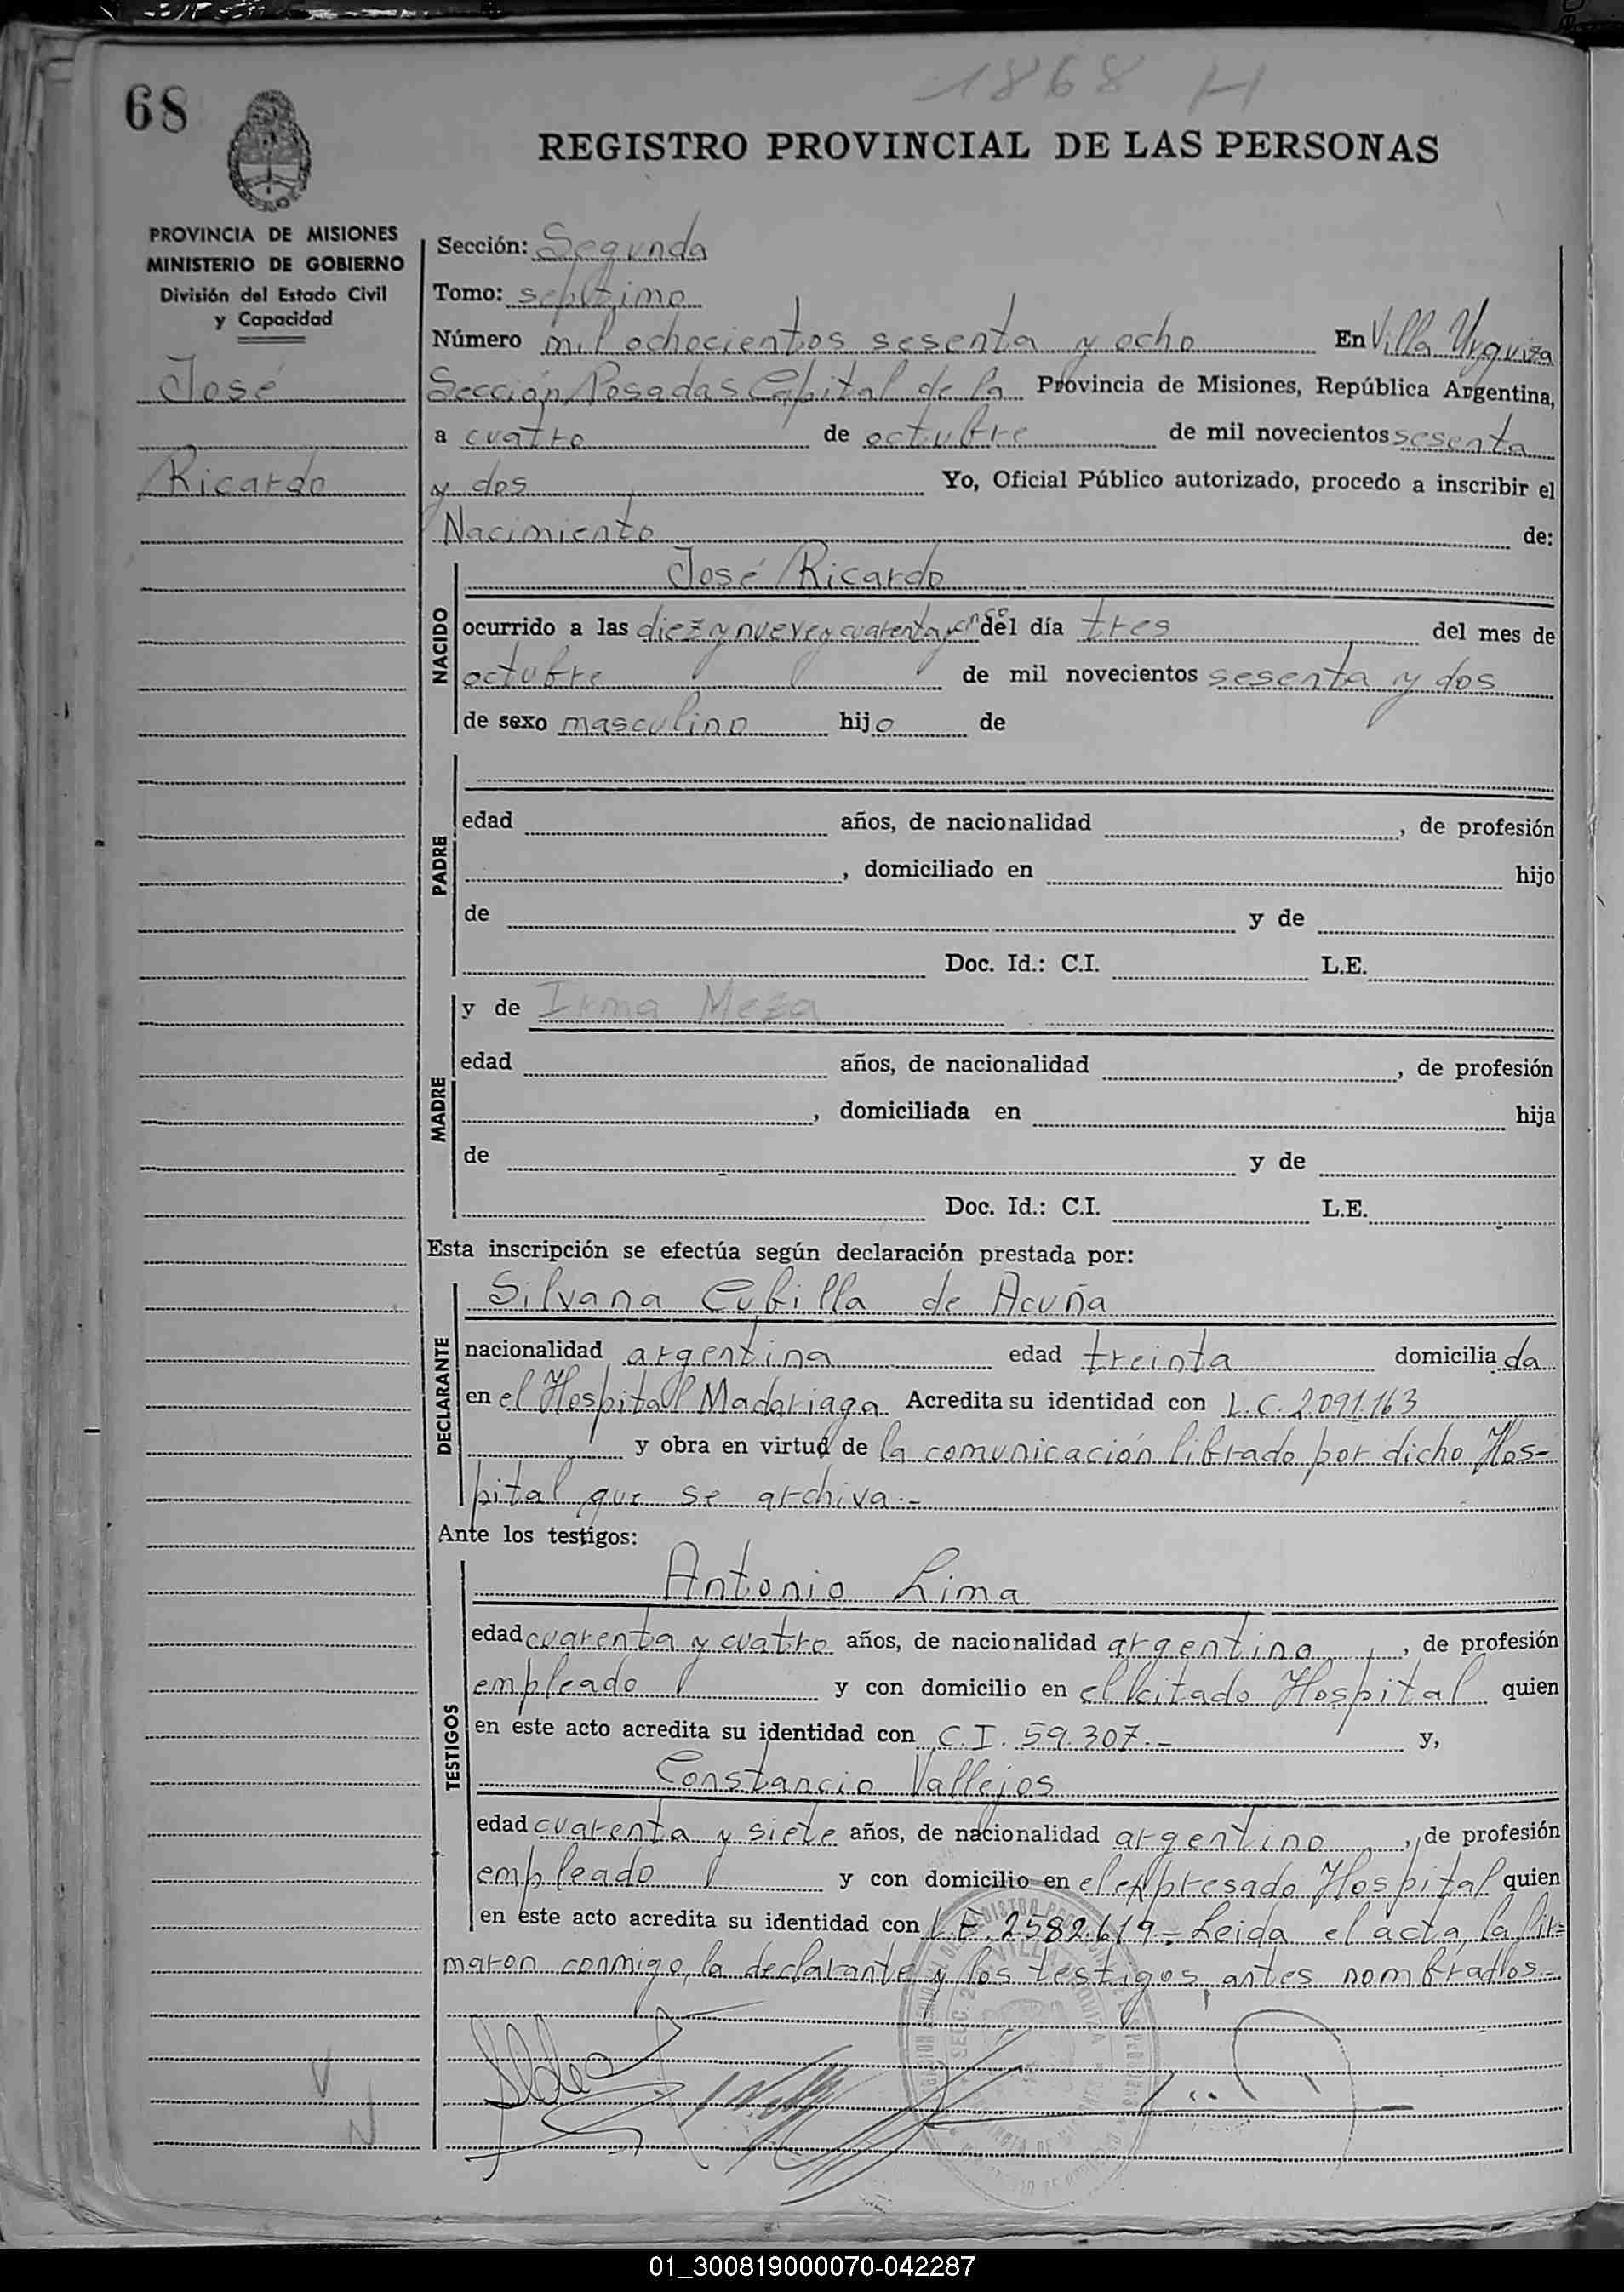 1868 H
68
REGISTRO PROVINCIAL DE LAS PERSONAS
PROVINCIA DE MISIONES
MINISTERIO DE GOBIERNO
División del Estado Civil
y Capacidad
José
Ricardo
Sección: Segunda
Tomo: septimo
Número mil ochocientos sesenta y ocho En Villa Urquiza
Sección Posadas Capital de la Provincia de Misiones, República Argentina,
a cuatro de octubre de mil novecientos sesenta
y dos Yo, Oficial Público autorizado, procedo a inscribir el
Nacimiento de:
José Ricardo
NACIDO
ocurrido a las diez y nueve y cuarenta y cinco del día tres del mes de
octubre de mil novecientos sesenta y dos
de sexo masculino hijo de
PADRE
edad años, de nacionalidad , de profesión
, domiciliado en hijo
de y de
Doc. Id.: C.I. L.E.
MADRE
y de Irma Meza
edad años, de nacionalidad , de profesión
, domiciliada en hija
de y de
Doc. Id.: C.I. L.E.
Esta inscripción se efectúa según declaración prestada por:
DECLARANTE
Silvana Cubilla de Acuña
nacionalidad argentina edad treinta domiciliada
en el Hospital Madariaga Acredita su identidad con L.C. 2.091.163
y obra en virtud de la comunicación librado por dicho Hos-
pital que se archiva.-
Ante los testigos:
TESTIGOS
Antonio Lima
edad cuarenta y cuatro años, de nacionalidad argentino, de profesión
empleado y con domicilio en el citado Hospital quien
en este acto acredita su identidad con C.I. 59.307.- y,
Constancio Vallejos
edad cuarenta y siete años, de nacionalidad argentino, de profesión
empleado y con domicilio en el expresado Hospital quien
en este acto acredita su identidad con L.E. 2582.619.- Leida el acta, la fir=
maron conmigo, la declarante y los testigos antes nombrados.-
01_300819000070-042287